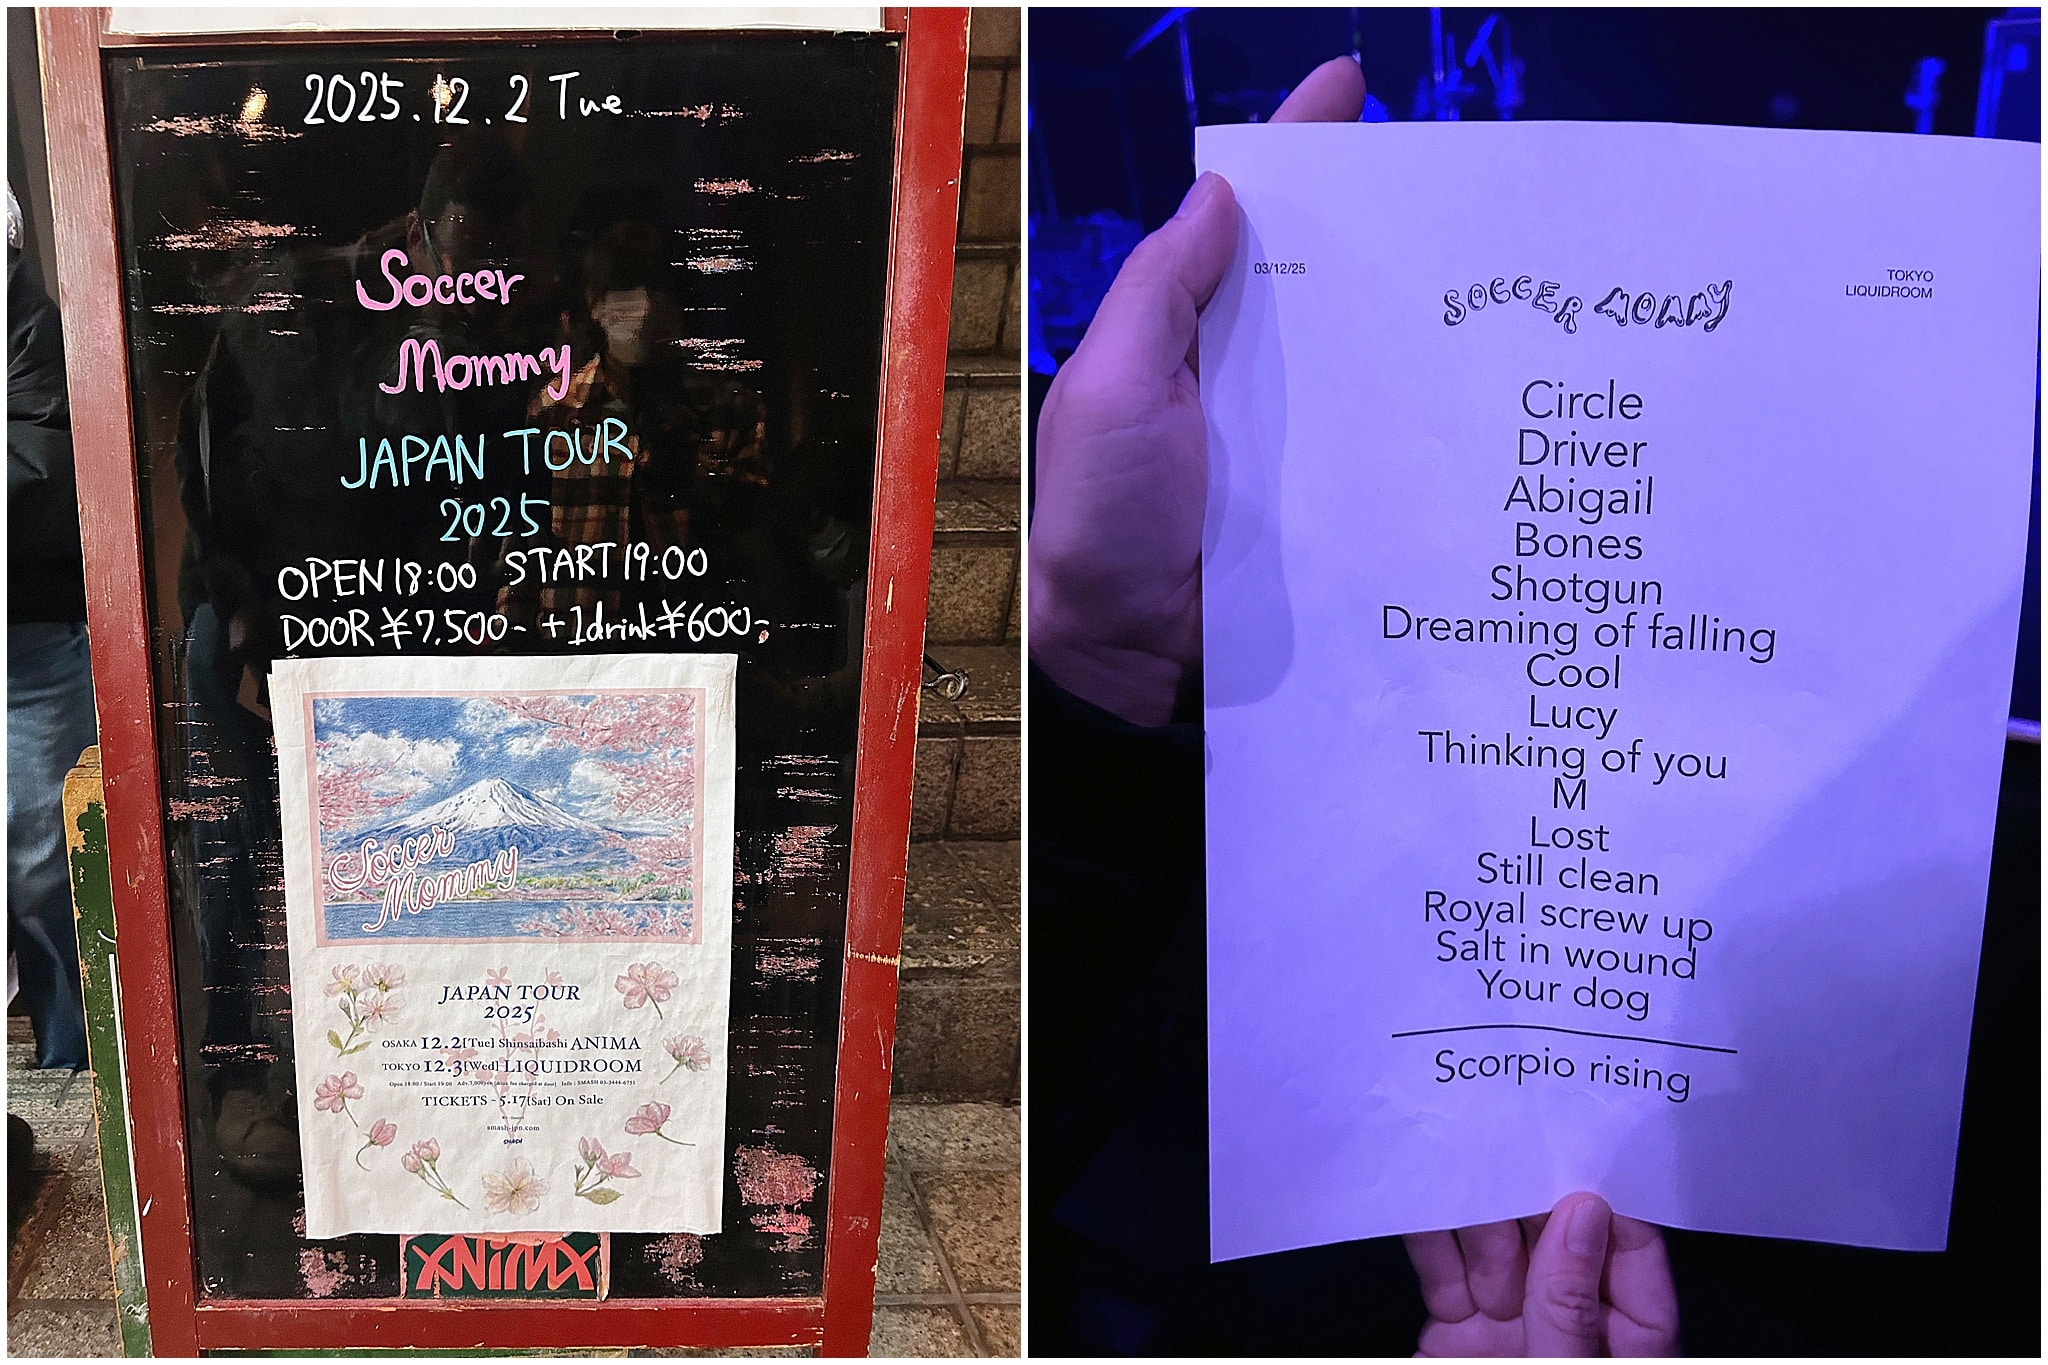 2025.12.2 Tue
Soccer
Mommy
JAPAN TOUR
2025
OPEN 18:00 START 19:00
DOOR ¥7,500- +1drink ¥600-
Soccer
Mommy
JAPAN TOUR
2025
OSAKA 12.2[Tue] Shinsaibashi ANIMA
TOKYO 12.3[Wed] LIQUIDROOM
Open 18:00 / Start 19:00 Adv.7,000yen [drink fee charged at door] Info : SMASH 03-3444-6751
TICKETS - 5.17[Sat] On Sale
smash-jpn.com
SMASH
ANIMA
03/12/25
TOKYO
LIQUIDROOM
SOCCER MOMMY
Circle
Driver
Abigail
Bones
Shotgun
Dreaming of falling
Cool
Lucy
Thinking of you
M
Lost
Still clean
Royal screw up
Salt in wound
Your dog
Scorpio rising